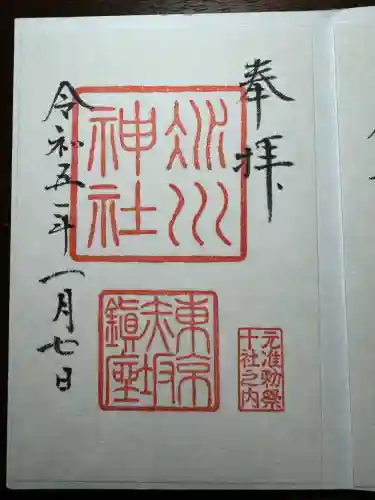 奉拝
氷川
神社
東京
赤坂
鎮座
元准勅祭
十社之内
令和五年一月七日